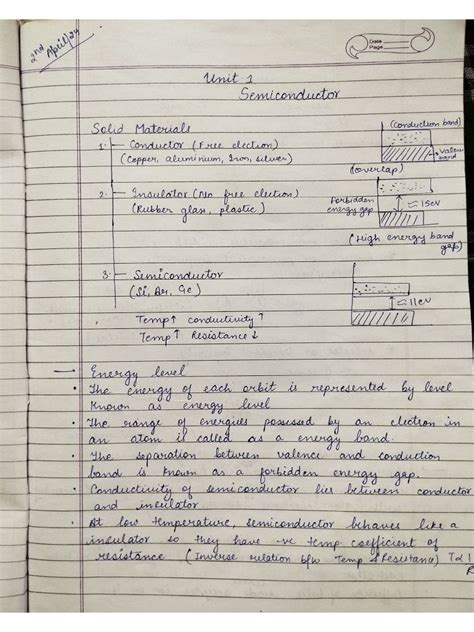 2nd April/24
Date
Page
Unit 1
Semiconductor
Solid Materials
1. Conductor (Free election)
(Copper, aluminium, Iron, silver)
(Conduction band)
Valence band
(overlap)
2. Insulator (No free election)
(Rubber glass, plastic)
Forbidden energy gap
≈ 15eV
(High energy band gap)
3. Semiconductor
(Si, Ar, Ge)
≈ 11eV
Temp↑ conductivity↑
Temp↑ Resistance↓
— Energy level
• The energy of each orbit is represented by level
known as energy level
• The range of energies possessed by an electron in
an atom is called as a energy band.
• The separation between valence and conduction
band is known as a forbidden energy gap.
• Conductivity of semiconductor lies between conductor
and insulator
• At low temperature, semiconductor behaves like a
insulator so they have -ve temp coefficient of
resistance (Inverse relation b/w Temp & Resistance) T α 1/R